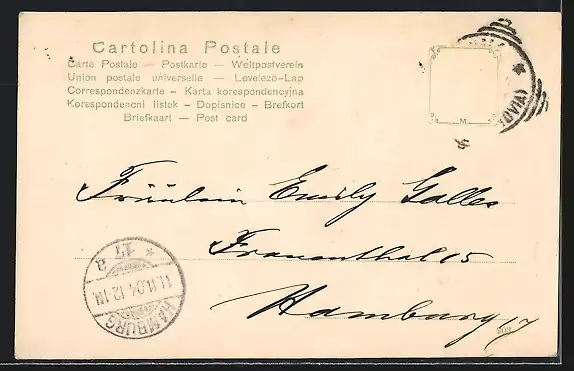 Cartolina Postale
Carte Postale — Postkarte — Weltpostverein
Union postale universelle — Levelező-Lap
Correspondenzkarte - Karta korespondencyjna
Korespondencni listek - Dopisnice - Brefkort
Briefkaart — Post card
M
Fräulein Emily Galles
Frauenthal 15
Hamburg
HAMBURG
11.11.04.12-1N.
* 17 a